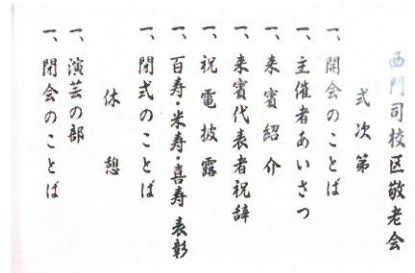 西門司校区敬老会
式次第
一、開会のことば
一、主催者あいさつ
一、来賓紹介
一、来賓代表者祝辞
一、祝電披露
一、百寿・米寿・喜寿表彰
一、閉式のことば
休憩
一、演芸の部
一、閉会のことば